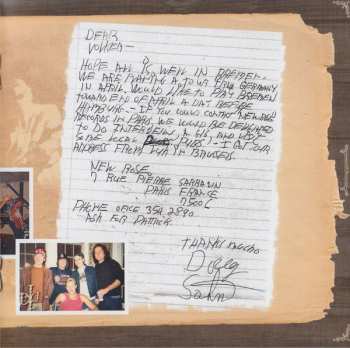 DEAR
VOLKER -
HOPE ALL IS WELL IN BREMEN -
WE ARE PLANNING A TOUR GERMANY
IN APRIL. WOULD LIKE TO PLAY BREMEN
TOWARD END OF APRIL A DAY BEFORE
HAMBURG - IF YOU COULD CONTACT NEW ROSE
RECORDS IN PARIS WE WOULD BE
TO DO INTERVIEW, AND
SOME LOCAL PUBS - I GOT YOUR
ADDRESS FROM IN BRUSSELS
NEW ROSE
7 RUE PIERRE SARRAZIN
PARIS FRANCE
75006
PHONE OFFICE 354 2890
ASK FOR PATRICK
THANKS MUCHO
Doug
Sahm